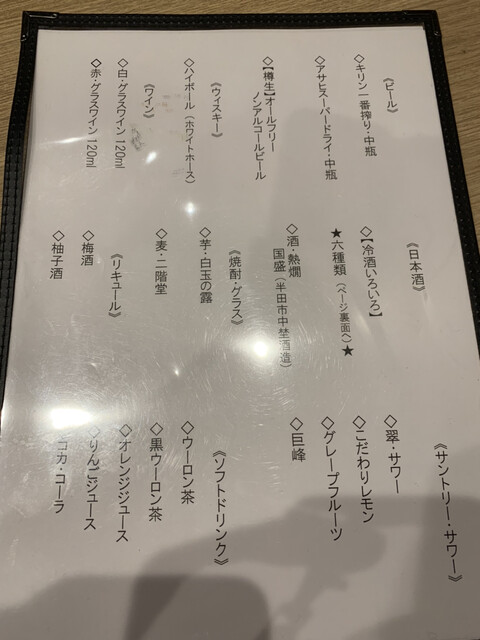 《ビール》
◇キリン一番搾り・中瓶
◇アサヒスーパードライ・中瓶
◇【樽生】オールフリー
ノンアルコールビール
《ウィスキー》
◇ハイボール（ホワイトホース）
《ワイン》
◇白・グラスワイン 120ml
◇赤・グラスワイン 120ml
《日本酒》
◇【冷酒いろいろ】
★六種類（ページ裏面へ）★
◇酒・熱燗
国盛（半田市中埜酒造）
《焼酎・グラス》
◇芋・白玉の露
◇麦・二階堂
《リキュール》
◇梅酒
◇柚子酒
《サントリー・サワー》
◇翠・サワー
◇こだわりレモン
◇グレープフルーツ
◇巨峰
《ソフトドリンク》
◇ウーロン茶
◇黒ウーロン茶
◇オレンジジュース
◇りんごジュース
コカ・コーラ